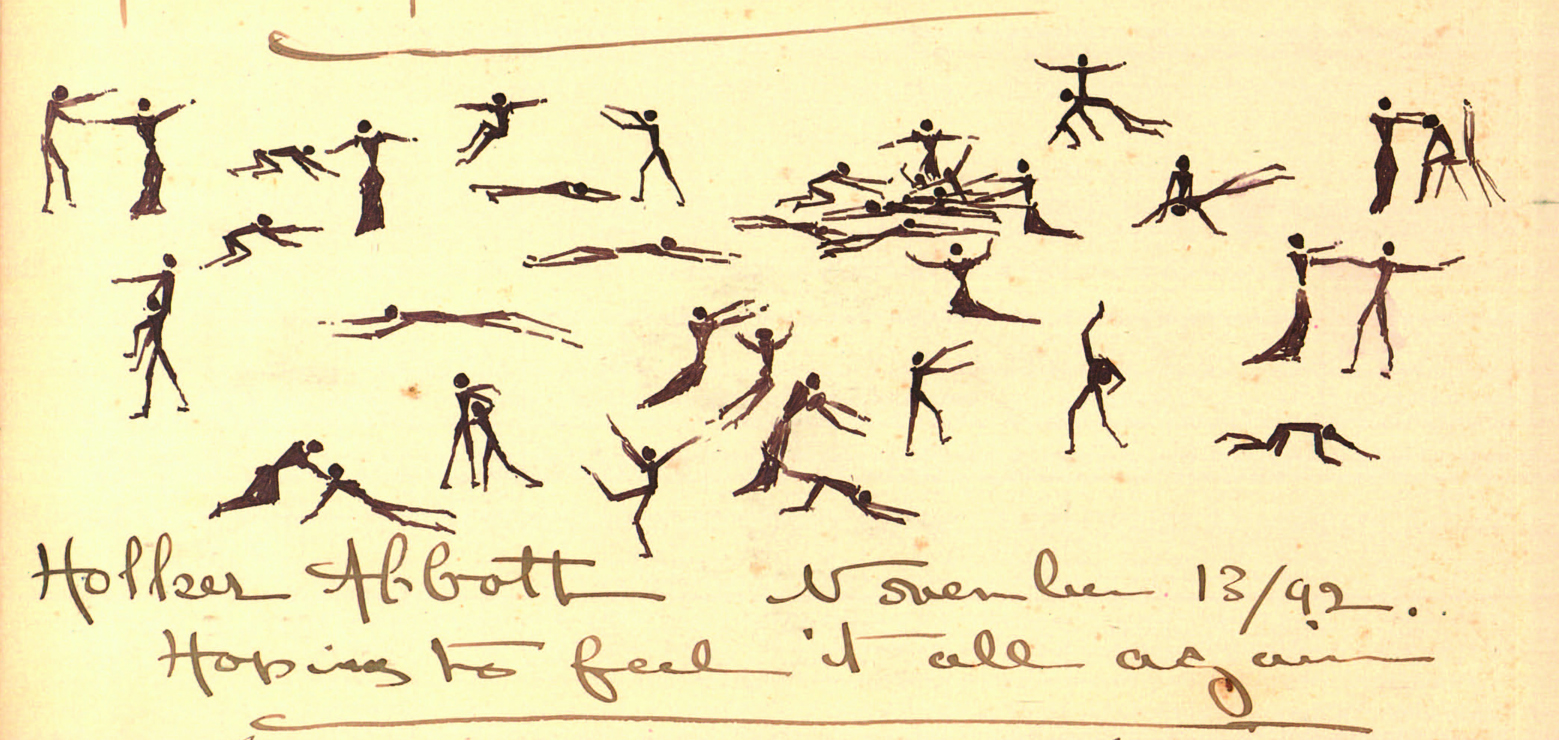 Holker Abbott November 13/92.
Hoping to feel it all again